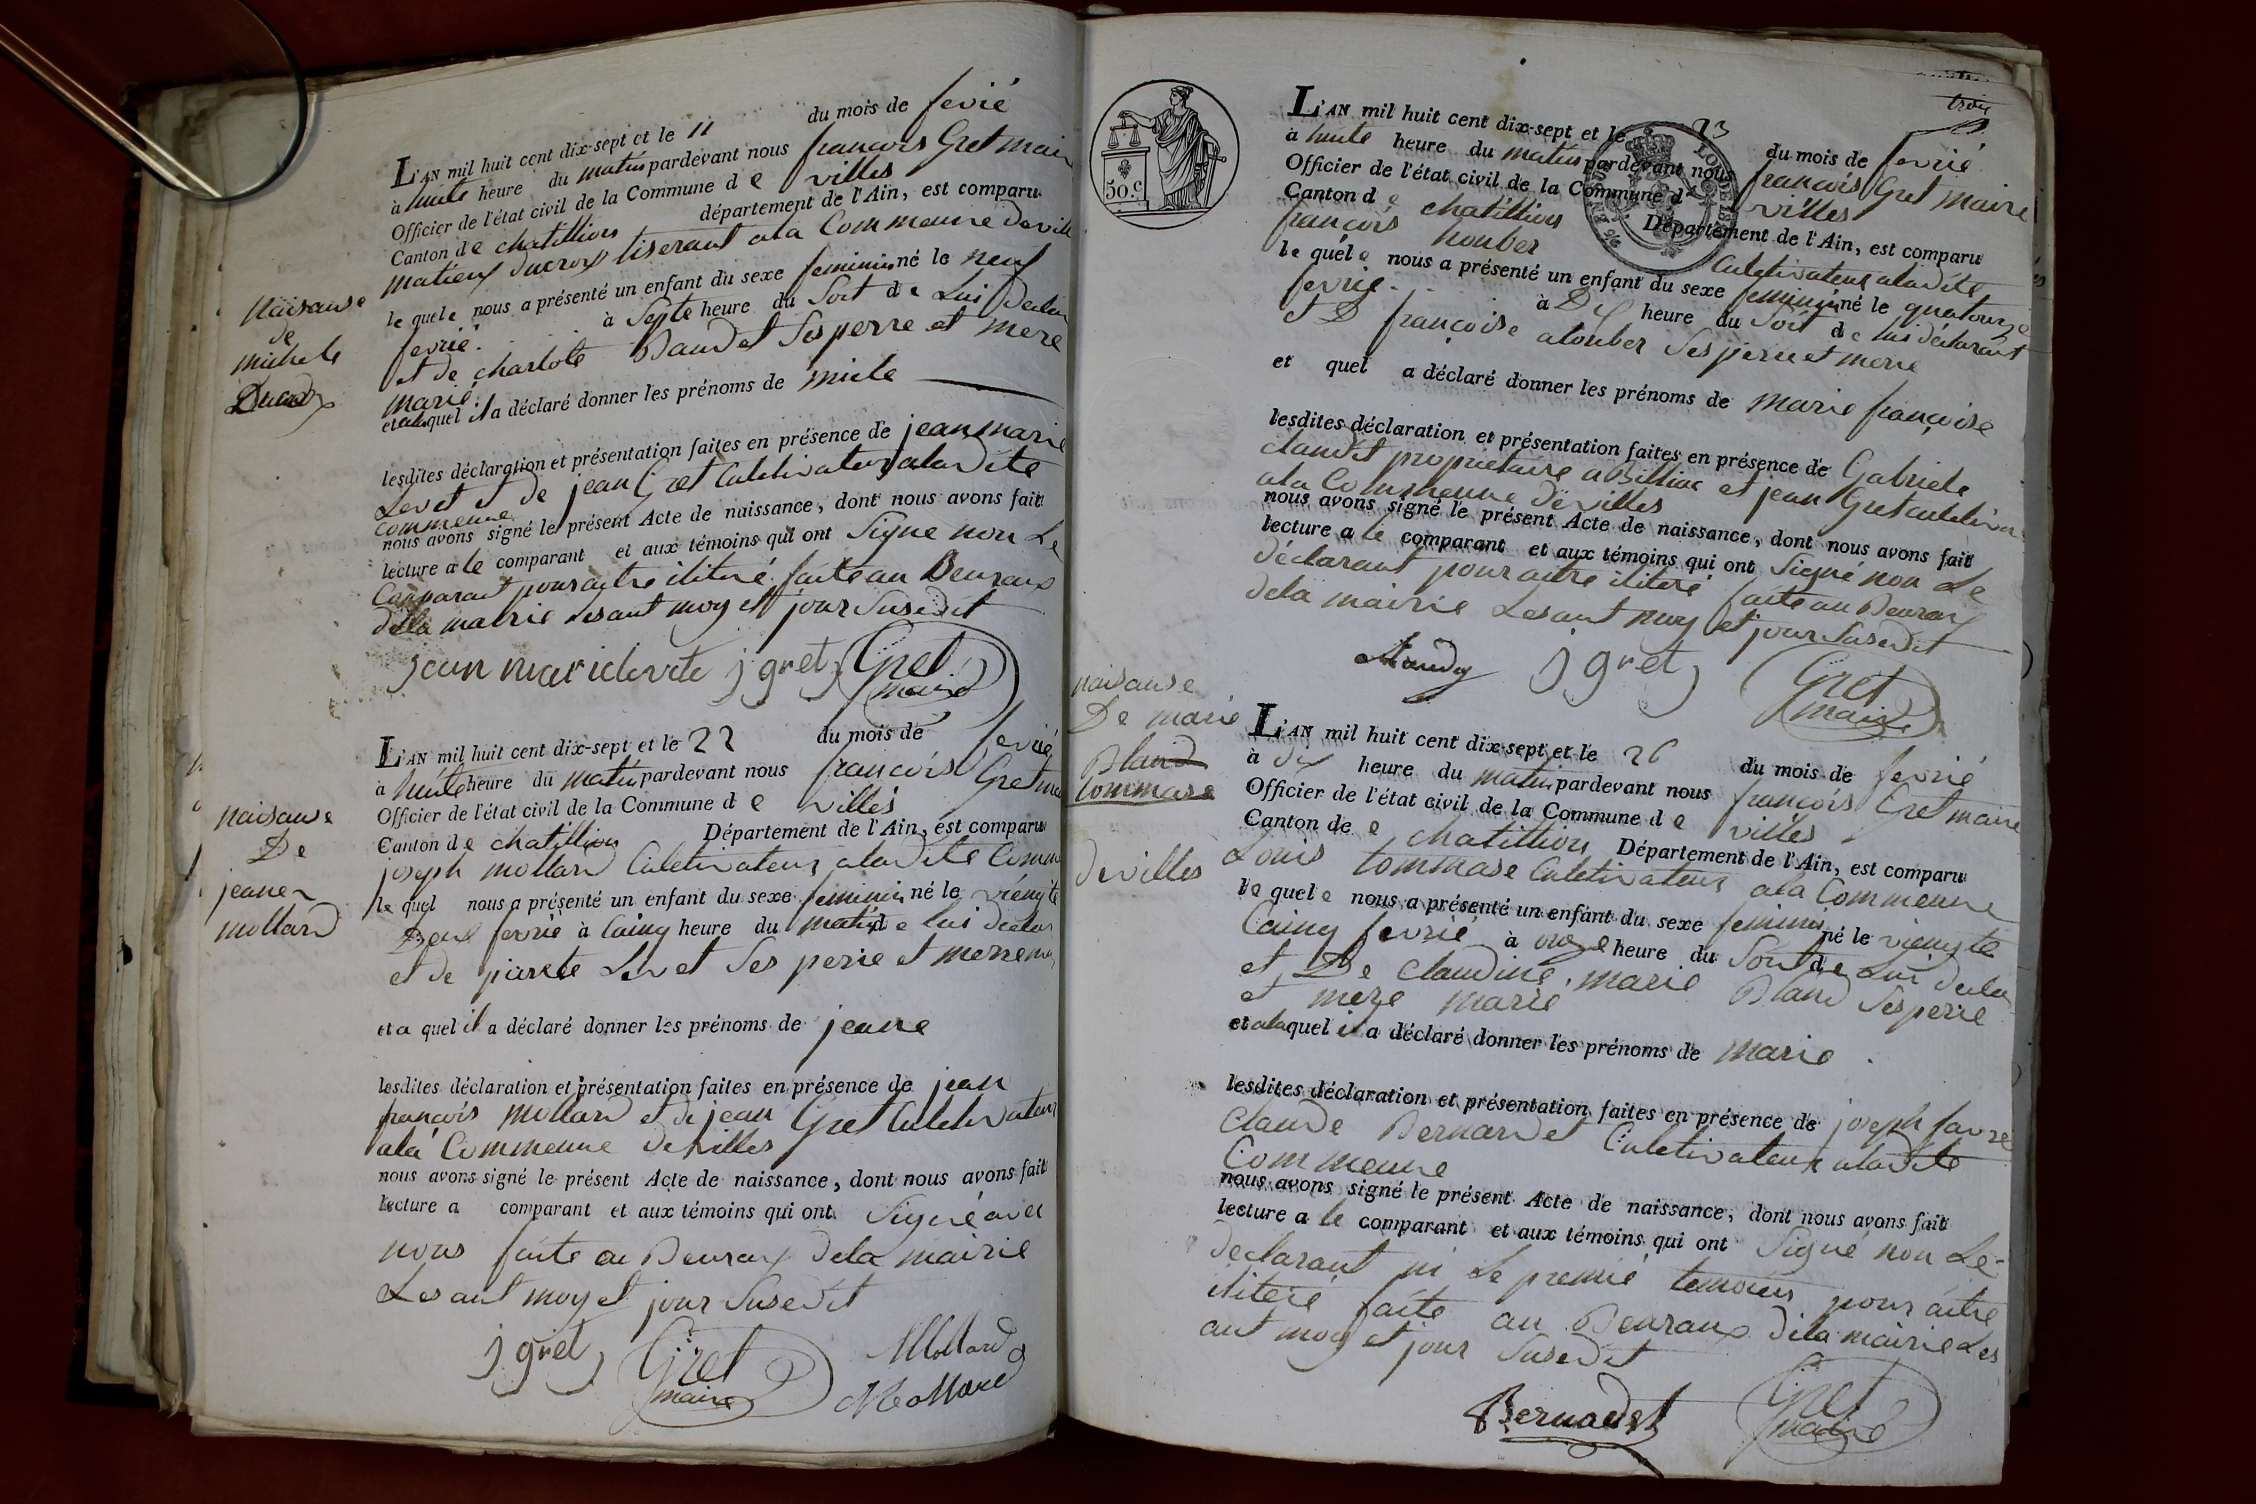 L'AN mil huit cent dix-sept et le 11 du mois de fevrié
à huite heure du matin pardevant nous francois Gret mair
Officier de l'état civil de la Commune d e villes
Canton de chatillion département de l'Ain, est comparu
matieu ducrox tiserant ala Commeune de vill
le quel e nous a présenté un enfant du sexe feminin né le neuf
fevrié. à Septe heure du Soit de Lui Declar
et de charlote Baudet Ses perre et mere
marié.
et alaquel il a déclaré donner les prénoms de michele
lesdites déclaration et présentation faites en présence de jean marie
Levet et de jean Gret Culetivateur ala dite
commeune
nous avons signé le présent Acte de naissance, dont nous avons fait
lecture a le comparant et aux témoins qui ont Signe non Le
Comparant pour aitre ilitéré faite au Beuraux
de la mairie Les ant moy et jour Susedit
jean marie levete j gret Gret
maire
naisanse
de
michele
Ducrox
L'AN mil huit cent dix-sept et le 22 du mois de fevrié
à huite heure du matin pardevant nous francois Gret mai
Officier de l'état civil de la Commune d e villes
Canton de chatillion Département de l'Ain, est comparu
joseph mollard Culetivateur a la dite Comm
le quel nous a présenté un enfant du sexe feminin né le viengte
Deux fevrié à Cainq heure du matin de lui declar
et de pierete Levet Ses perre et merre
et a quel il a déclaré donner les prénoms de jeane
lesdites déclaration et présentation faites en présence de jean
francois mollard et de jean Gret Culetivateur
ala Commeune de villes
nous avons signé le présent Acte de naissance, dont nous avons fait
lecture a comparant et aux témoins qui ont Signé avec
nous faite au Beuraux de la mairie
Les ant moy et jour Susedit
j gret Gret Mollard
maire Mollard
naisanse
De
jeane
mollard
trois
50.c
L'AN mil huit cent dix-sept et le 23 du mois de fevrié
à huite heure du matin pardevant nous francois Gret maire
Officier de l'état civil de la Commune d villes
Canton d e chatillion Département de l'Ain, est comparu
francois Culetivateur ala dite
le quel e nous a présenté un enfant du sexe feminin né le quatourze
fevrié. à Dix heure du Soit de lui déclarant
et D francoise Ses perre et merre
et quel a déclaré donner les prénoms de marie françoise
lesdites déclaration et présentation faites en présence de Gabriele
claudet propriétaire a Billiac et jean Gret culetivat
ala Commeune de villes
nous avons signé le présent Acte de naissance, dont nous avons fait
lecture a le comparant et aux témoins qui ont Signé non Le
declarant pour aitre ilitéré faite au Beuraux
de la mairie Les ant moy et jour Susedit
j gret Gret
maire
L'AN mil huit cent dix-sept et le 26 du mois de fevrié
à dix heure du matin pardevant nous francois Gret maire
Officier de l'état civil de la Commune d e villes
Canton de e chatillion Département de l'Ain, est comparu
Louis tommase Culetivateur ala Commeune
le quel e nous a présenté un enfant du sexe feminin né le viengte
Cainq fevrié à onze heure du Soit de Lui decla
et De claudine marie Bland Ses perre
et mere marié
et alaquel il a déclaré donner les prénoms de marie
lesdites déclaration et présentation faites en présence de joseph favre
Claude Bernardet Culetivateur ala dite
Commeune
nous avons signé le présent Acte de naissance, dont nous avons fait
lecture a le comparant et aux témoins qui ont Signé non Le
declarant ni Le premié temoien pour aitre
ilitéré faite au Beuraux de la mairie Les
ant moy et jour Susedit
Bernardet Gret
maire
naisanse
De marie
Bland
tommase
de villes